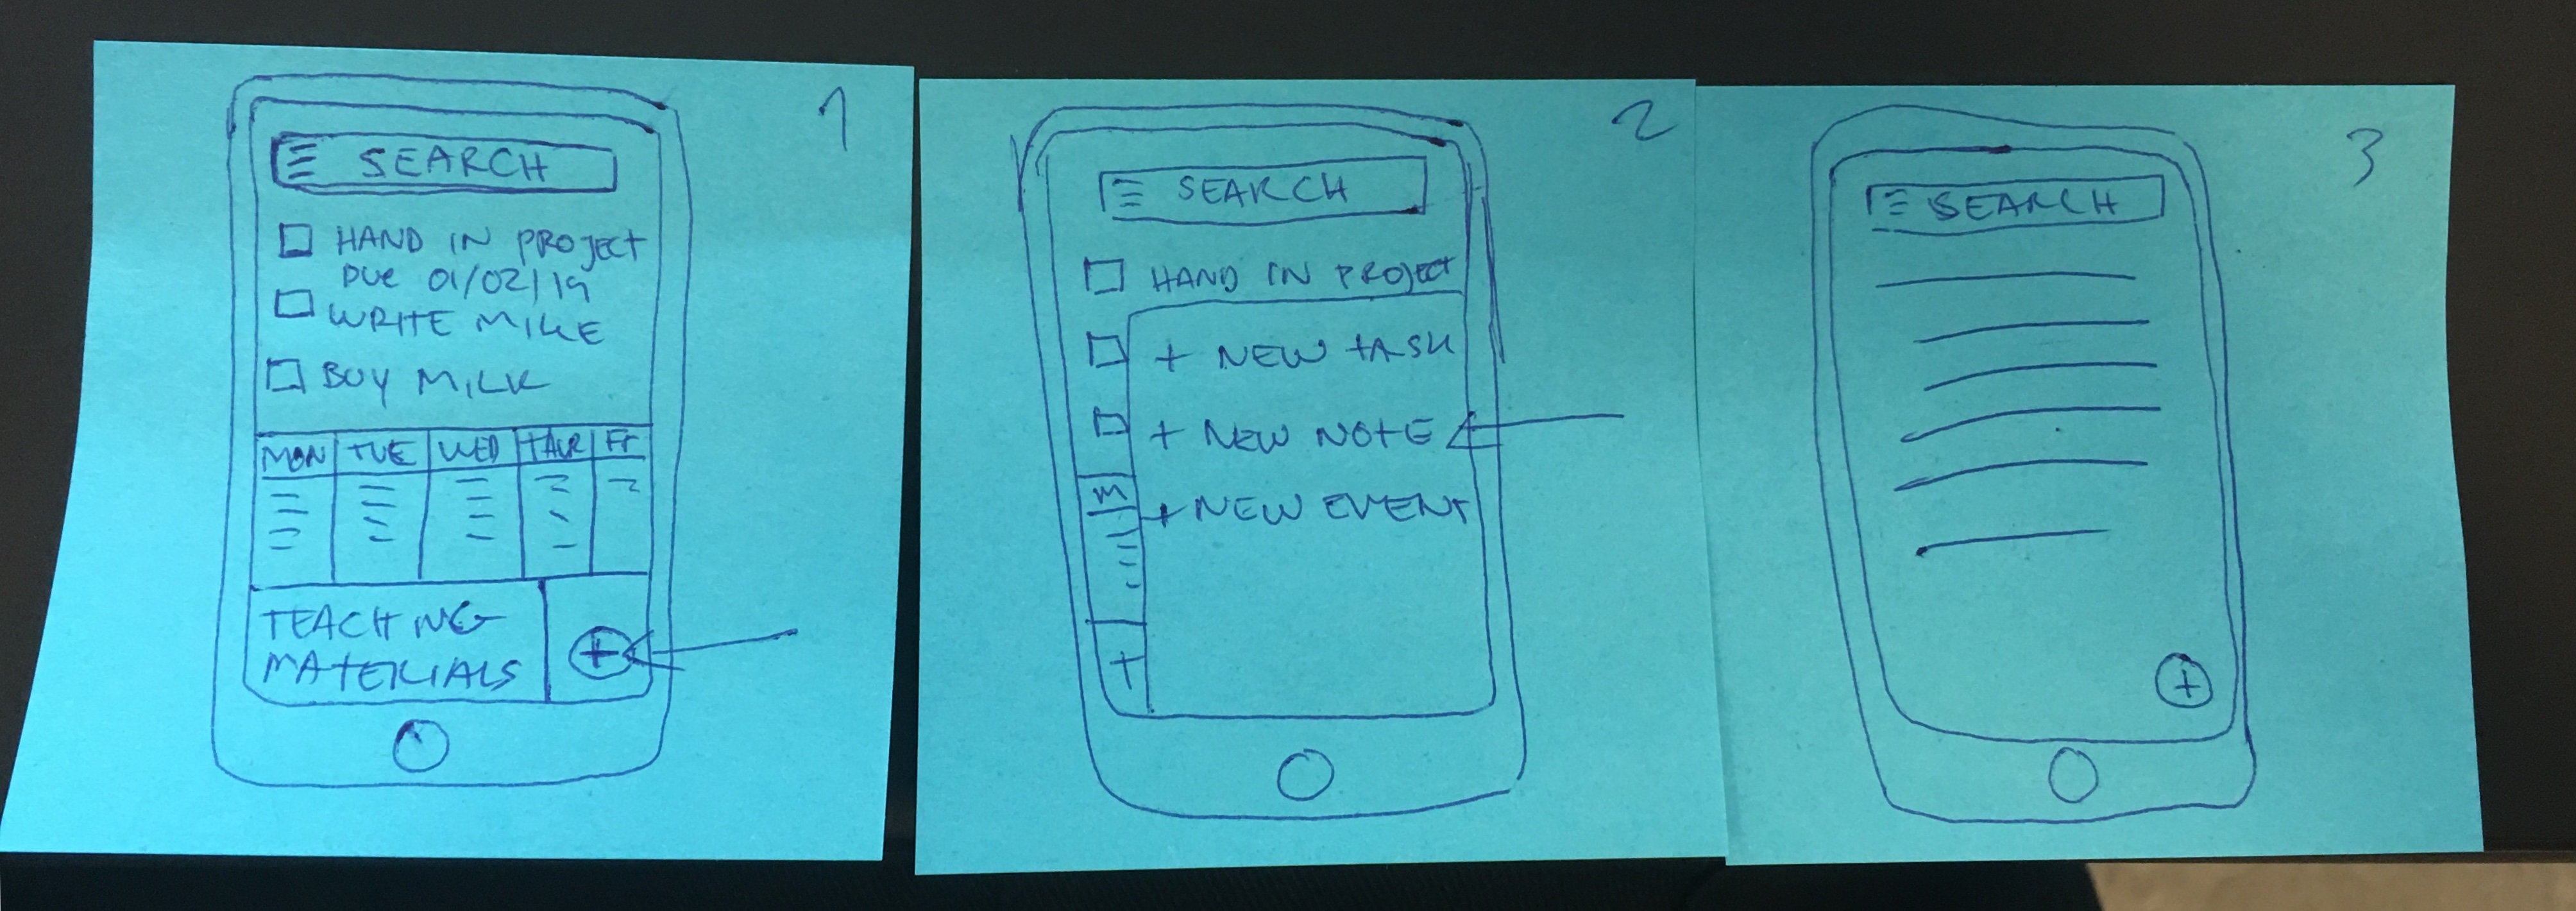 1
SEARCH
HAND IN PROJECT
DUE 01/02/19
WRITE MIKE
BUY MILK
MON TUE WED THUR FR
TEACHING
MATERIALS
+
2
SEARCH
HAND IN PROJECT
+ NEW TASK
+ NEW NOTE
M
+ NEW EVENT
T
3
SEARCH
+